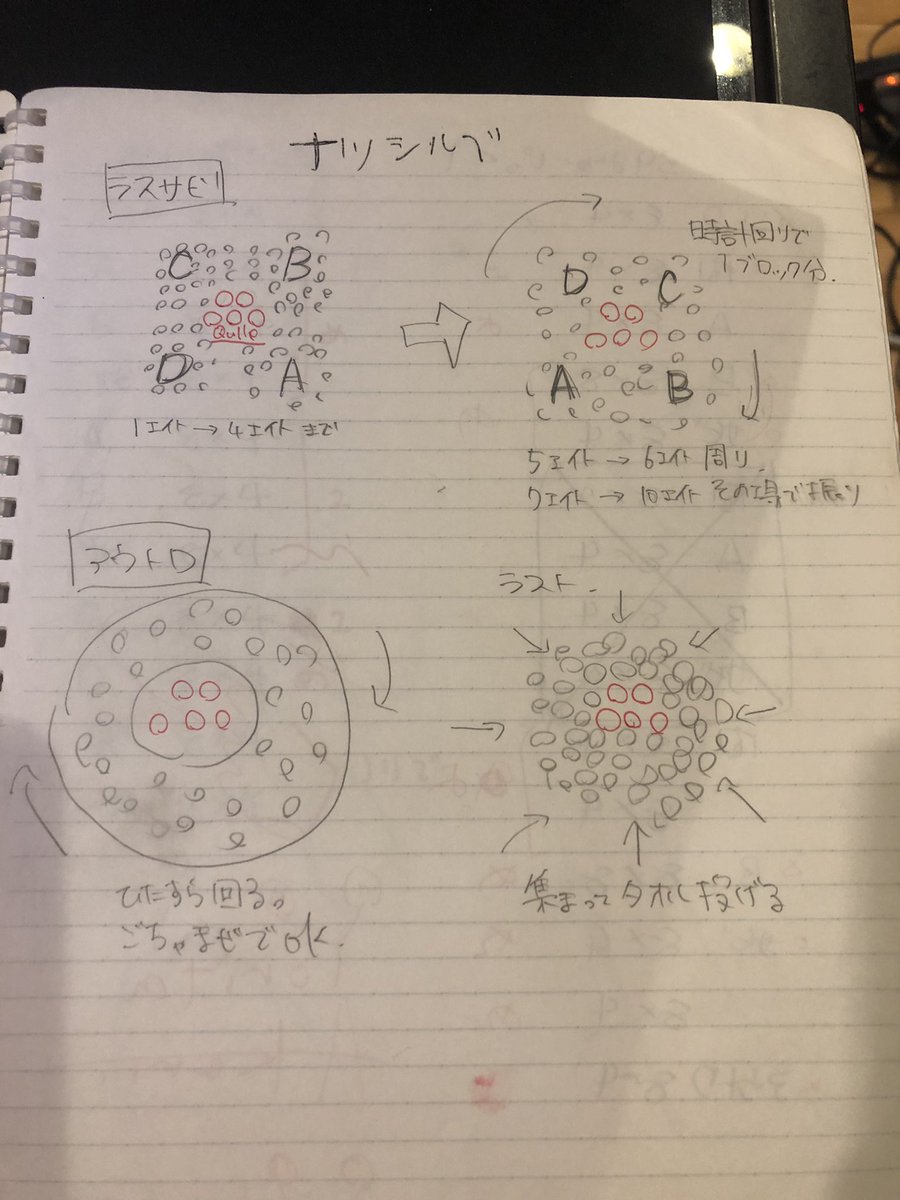 ナツシルベ
ラスサビ
C B
Qulle
D A
1エイト→4エイトまで
時計回りで
1ブロック分.
D C
A B
5エイト→6エイト周り.
7エイト→10エイト その場で振り
アウトロ
ひたすら回る。
ごちゃまぜでOK.
ラスト.
集まってタオル投げる